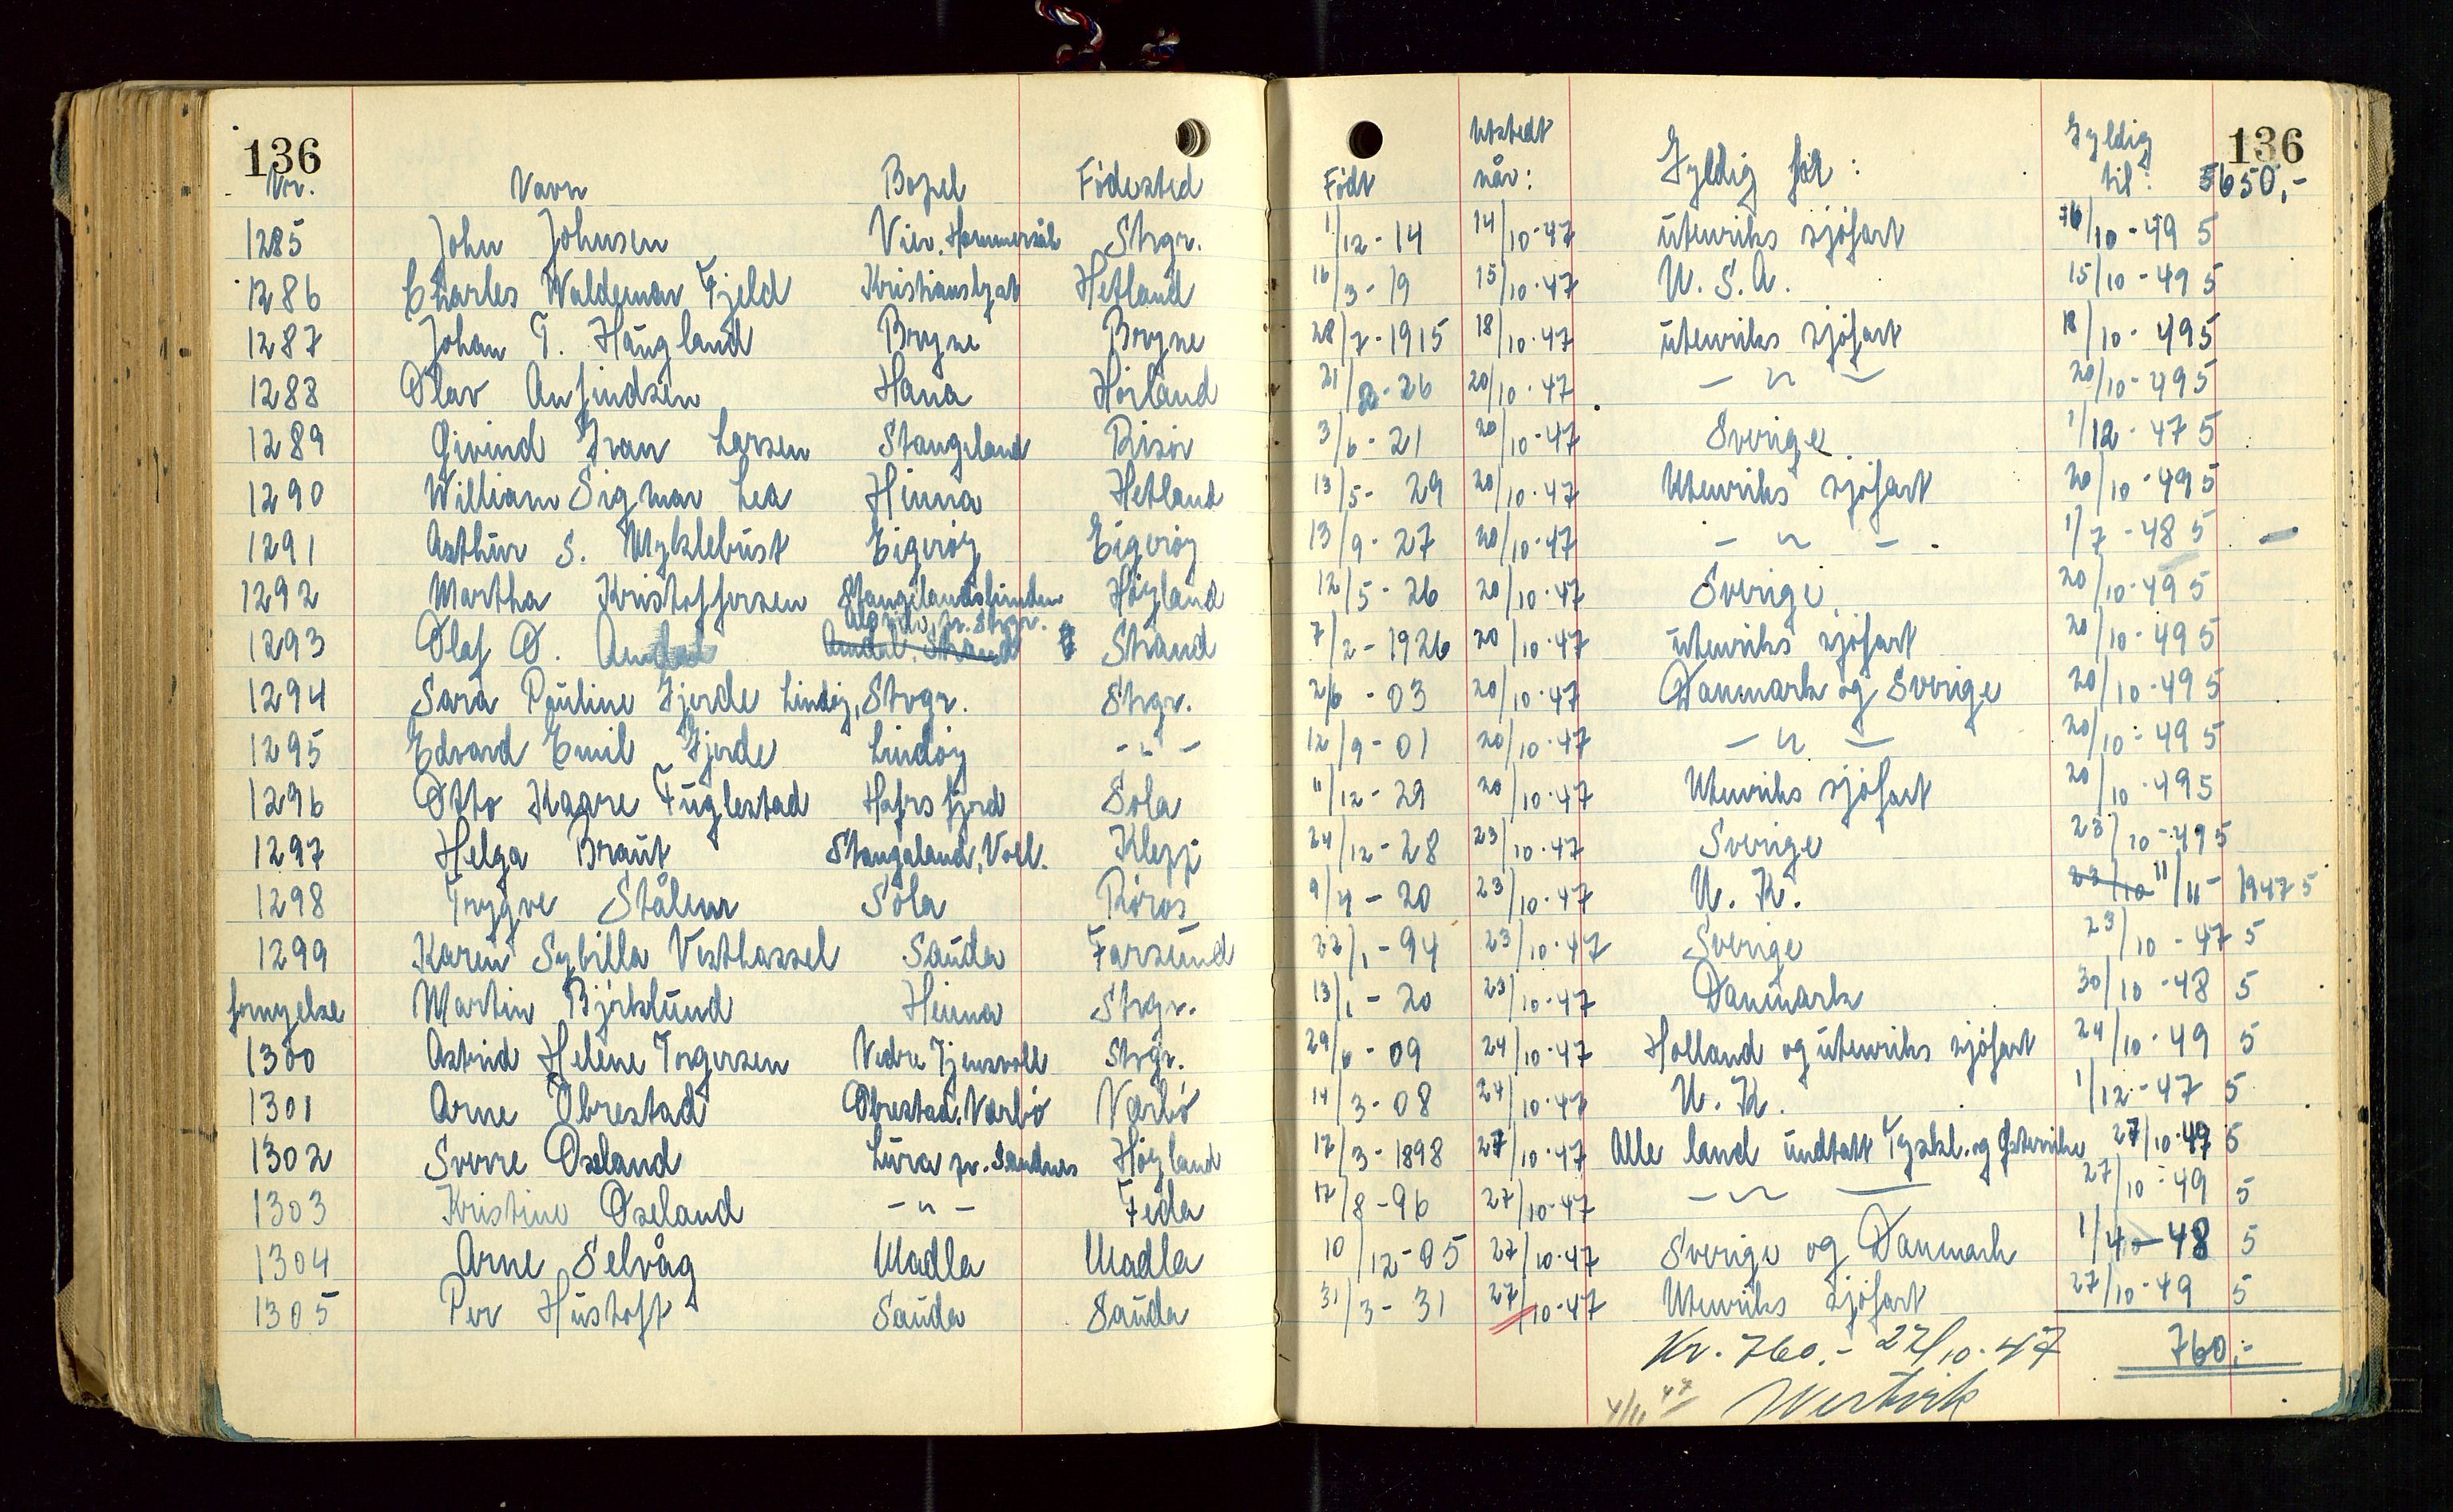 136 136
Nr. Navn Bopel Födested Födt Utstedt når: Gyldig for: Gyldig til: 5650,-
1285 John Johnsen Vier. Hommersåk Stvgr. 1/12-14 14/10-47 utenriks sjöfart /10-49 5
1286 Charles Waldemar Fjeld Kristianslyst Hetland 16/3-19 15/10-47 U.S.A. 15/10-49 5
1287 Johan T. Haugland Bryne Bryne 28/7-1915 18/10-47 utenriks sjöfart 18/10-49 5
1288 Olav Anfindsen Hana Hörland 21/-26 20/10-47 —"— 20/10-49 5
1289 Eivind Ivan Larsen Stangeland Risör 3/6-21 20/10-47 Sverige 1/12-47 5
1290 William Sigmar Lea Hinna Hetland 13/5-29 20/10-47 Utenriks sjöfart 20/10-49 5
1291 Arthur S. Myklebust Eigeröy Eigeröy 13/9-27 20/10-47 —"— 1/7-48 5 —
1292 Martha Kristoffersen Stangelandslinden Höyland 12/5-26 20/10-47 Sverige. 20/10-49 5
1293 Olaf O. Amdal Amdal. Strand Strand 7/2-1926 20/10-47 utenriks sjöfart 20/10-49 5
1294 Sara Pauline Gjerde Lindöy, Stvgr. Stvgr. 2/6-03 20/10-47 Danmark og Sverige 20/10-49 5
1295 Edvard Emil Gjerde Lindöy -"- 12/9-01 20/10-47 —"— 20/10-49 5
1296 Otto Kaare Fuglestad Hafrsfjord Sola 11/12-29 20/10-47 Utenriks sjöfart 20/10-49 5
1297 Helga Braut Stangaland, Voll. Klepp 24/12-28 23/10-47 Sverige 23/10-49 5
1298 Trygve Stålem Sola Röros 9/4-20 23/10-47 U.K. 23/10 11/11-1947 5
1299 Karen Sybilla Vesthassel Sauda Farsund 22/1-94 23/10-47 Sverige 23/10-47 5
fornyelse Martin Björklund Hinna Stvgr. 13/1-20 23/10-47 Danmark 30/10-48 5
1300 Astrid Helene Torgersen Nedre Tjensvoll Stvgr. 29/6-09 24/10-47 Holland og utenriks sjöfart 24/10-49 5
1301 Arne Obrestad Obrestad. Nærbö Nærbö 14/3-08 24/10-47 U.K. 1/12-47 5
1302 Sverre Oseland Lura pr. Sandnes Höyland 17/3-1898 27/10-47 Alle land undtatt Tyskl. og Østerrike 27/10-49 5
1303 Kristine Oseland -"- Feda 17/8-96 27/10-47 —"— 27/10-49 5
1304 Arne Selvåg Madla Madla 10/12-05 27/10-47 Sverige og Danmark 1/4-48 5
1305 Per Hustoft Sauda Sauda 31/3-31 27/10-47 Utenriks sjöfart 27/10-49 5
Kr. 760.- 27/10-47 760,-
4/11 47 Westvik